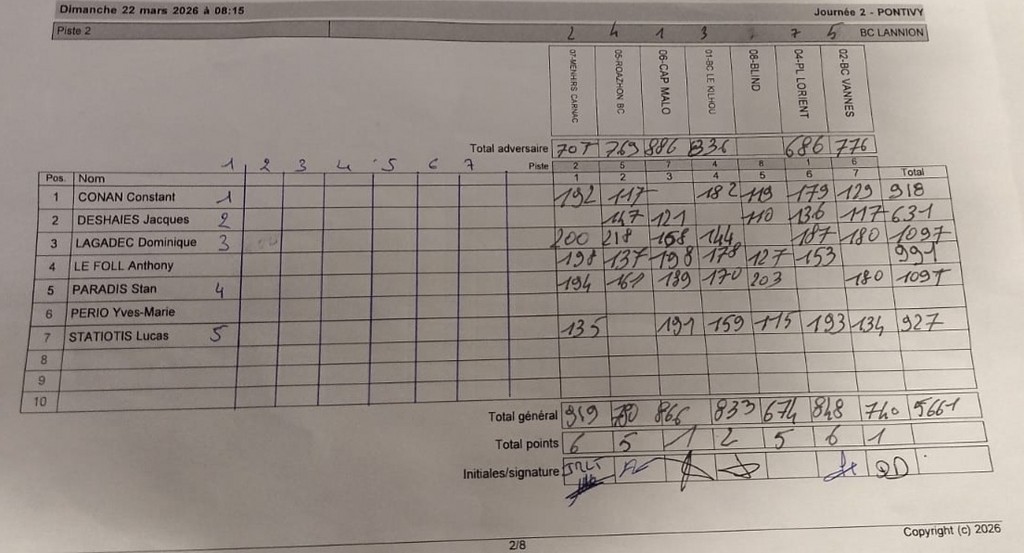 Dimanche 22 mars 2026 à 08:15 Journée 2 - PONTIVY
Piste 2 BC LANNION
2 4 1 3 7 5
07-MENHIRS CARNAC 05-ROAZHON BC 06-CAP MALO 01-BC LE KILHOU 08-BLIND 04-PL LORIENT 02-BC VANNES
Total adversaire 707 769 886 836 686 776
1 2 3 4 5 6 7 Piste 2 5 7 4 8 1 6
Pos. Nom 1 2 3 4 5 6 7 Total
1 CONAN Constant 1 192 117 182 119 179 129 918
2 DESHAIES Jacques 2 147 121 110 136 117 631
3 LAGADEC Dominique 3 200 218 158 144 187 180 1097
4 LE FOLL Anthony 198 137 198 178 127 153 991
5 PARADIS Stan 4 194 161 170 203 180 1097
6 PERIO Yves-Marie
7 STATIOTIS Lucas 5 135 191 159 115 193 134 927
8
9
10
Total général 919 780 866 833 674 848 740 5661
Total points 6 5 1 2 5 6 1
Initiales/signature
Copyright (c) 2026
2/8